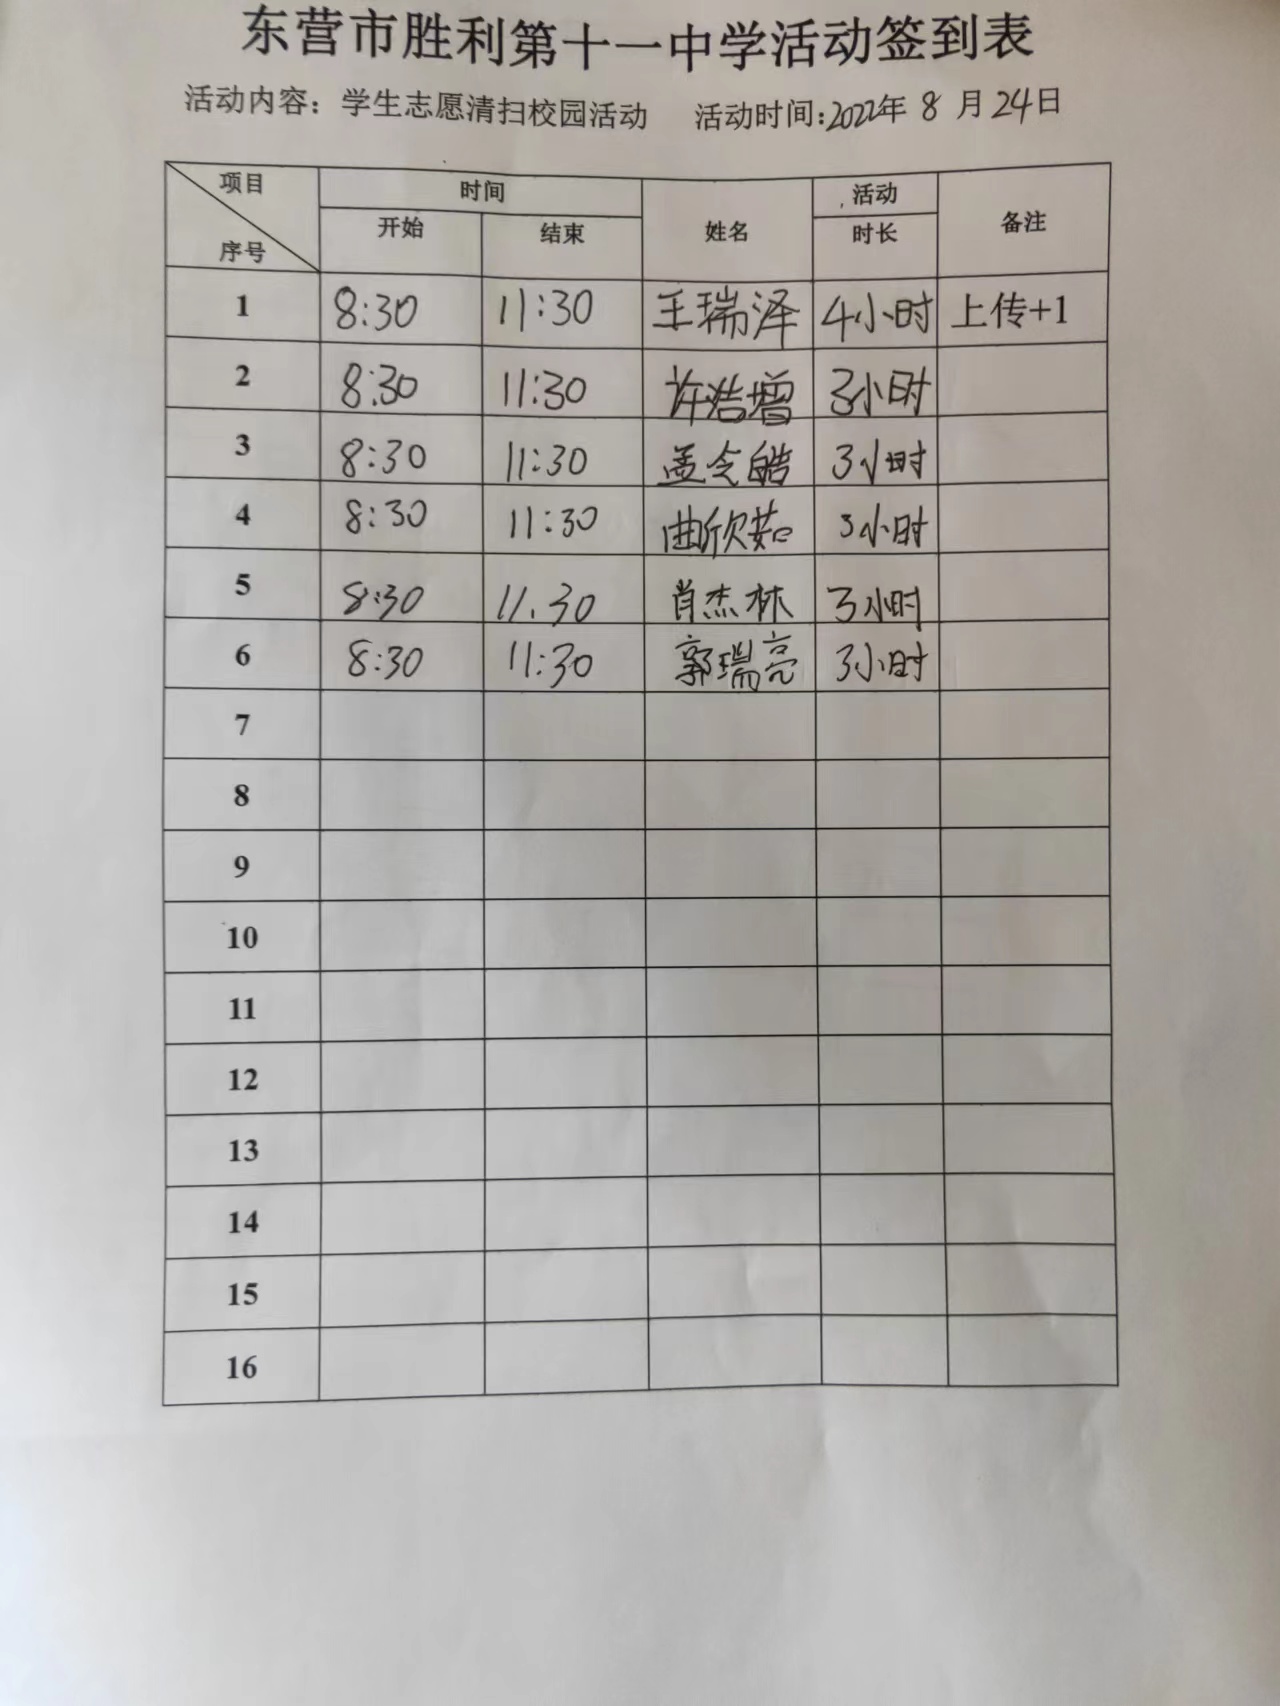 东营市胜利第十一中学活动签到表
活动内容：学生志愿清扫校园活动 活动时间:2022年 8 月 24日
项目 序号 时间 姓名 活动 备注
开始 结束 时长
1 8:30 11:30 王瑞泽 4小时 上传+1
2 8:30 11:30 许浩增 3小时
3 8:30 11:30 孟令皓 3小时
4 8:30 11:30 曲欣茹 3小时
5 8:30 11.30 肖杰林 3小时
6 8:30 11:30 郭瑞亮 3小时
7
8
9
10
11
12
13
14
15
16